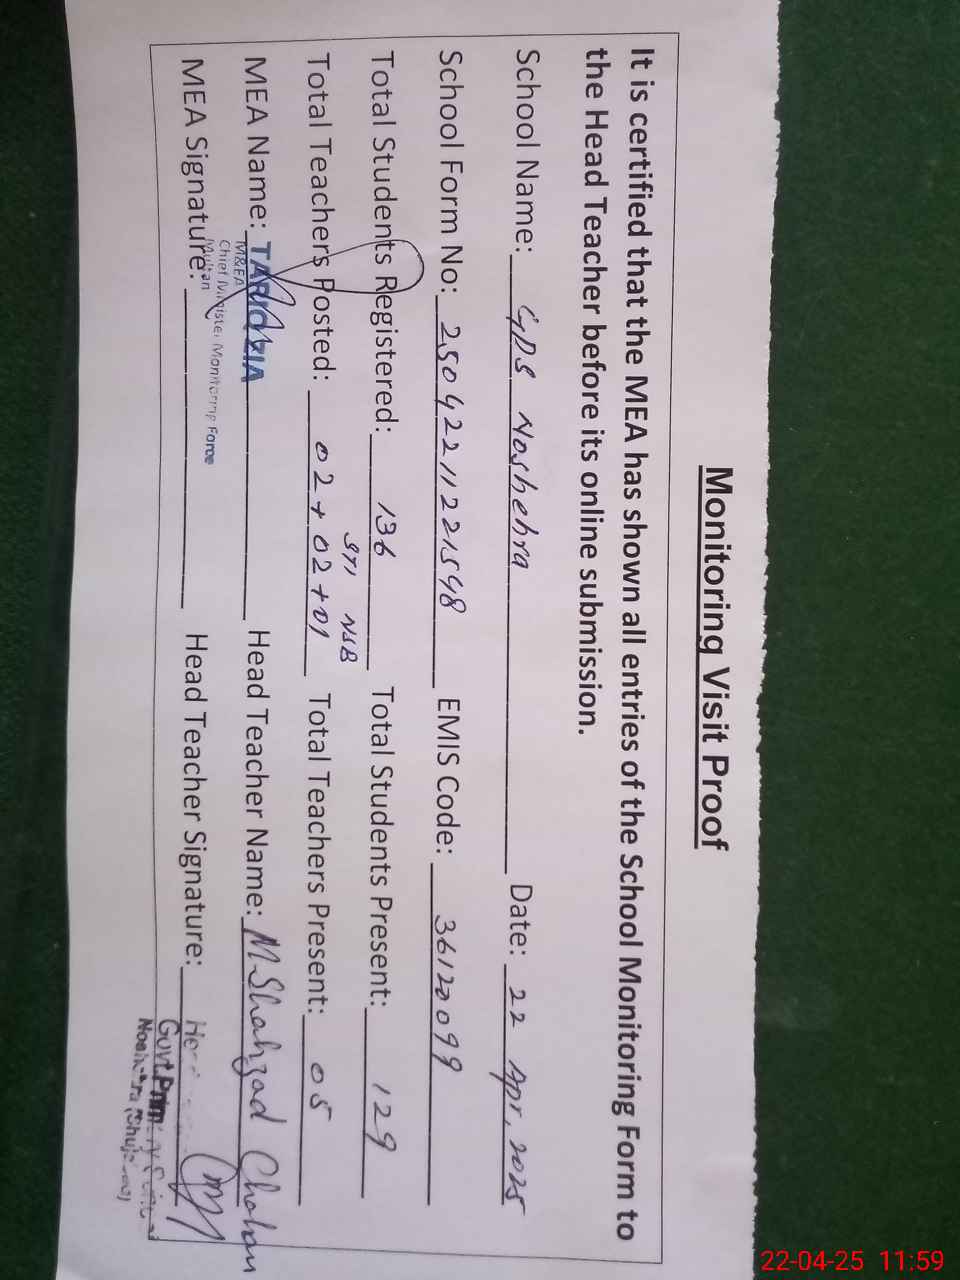 Monitoring Visit Proof
It is certified that the MEA has shown all entries of the School Monitoring Form to
the Head Teacher before its online submission.
School Name: GPS Noshehra Date: 22 Apr, 2025
School Form No: 25042211221548 EMIS Code: 36120099
Total Students Registered: 136 Total Students Present: 129
STI NSB
Total Teachers Posted: 02+02+01 Total Teachers Present: 05
MEA Name: TARIQ ZIA Head Teacher Name: M. Shahzad Chohan
M&EA
Chief Minister Monitoring Force
Multan
MEA Signature: Head Teacher Signature:
Govt.
22-04-25 11:59